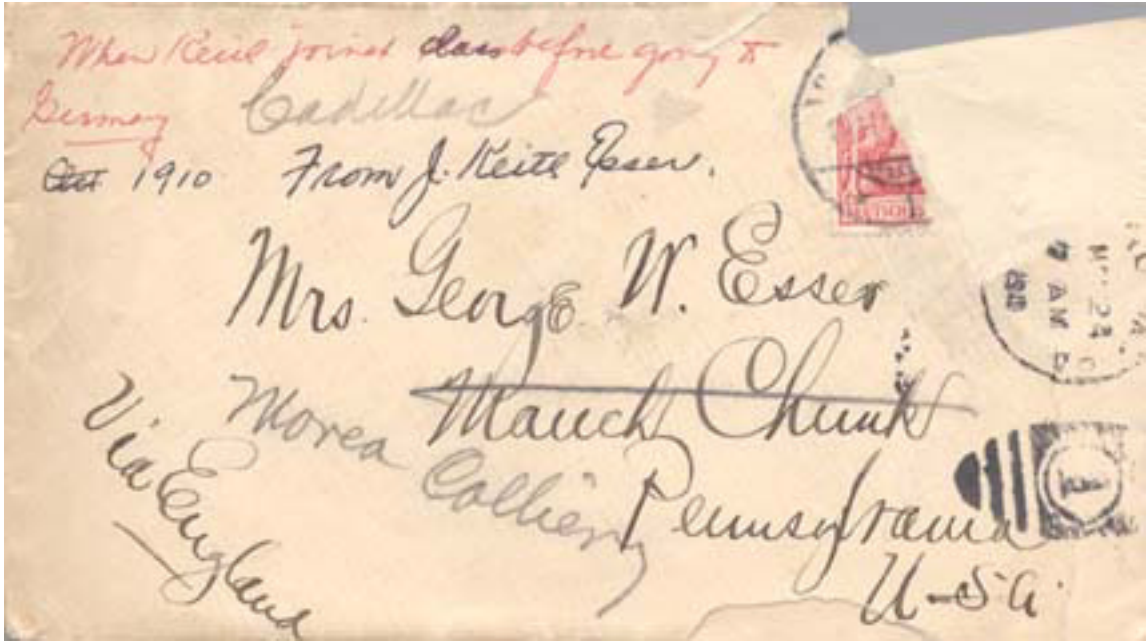 When Keith joined class before going to
Germany
Cadillac
Oct 1910 From J. Keith Esser.
Mrs. George W. Esser
Mauch Chunk
Morea
Colliery
Pennsylvania
U-SA.
Via England
24
7 AM
1910
1